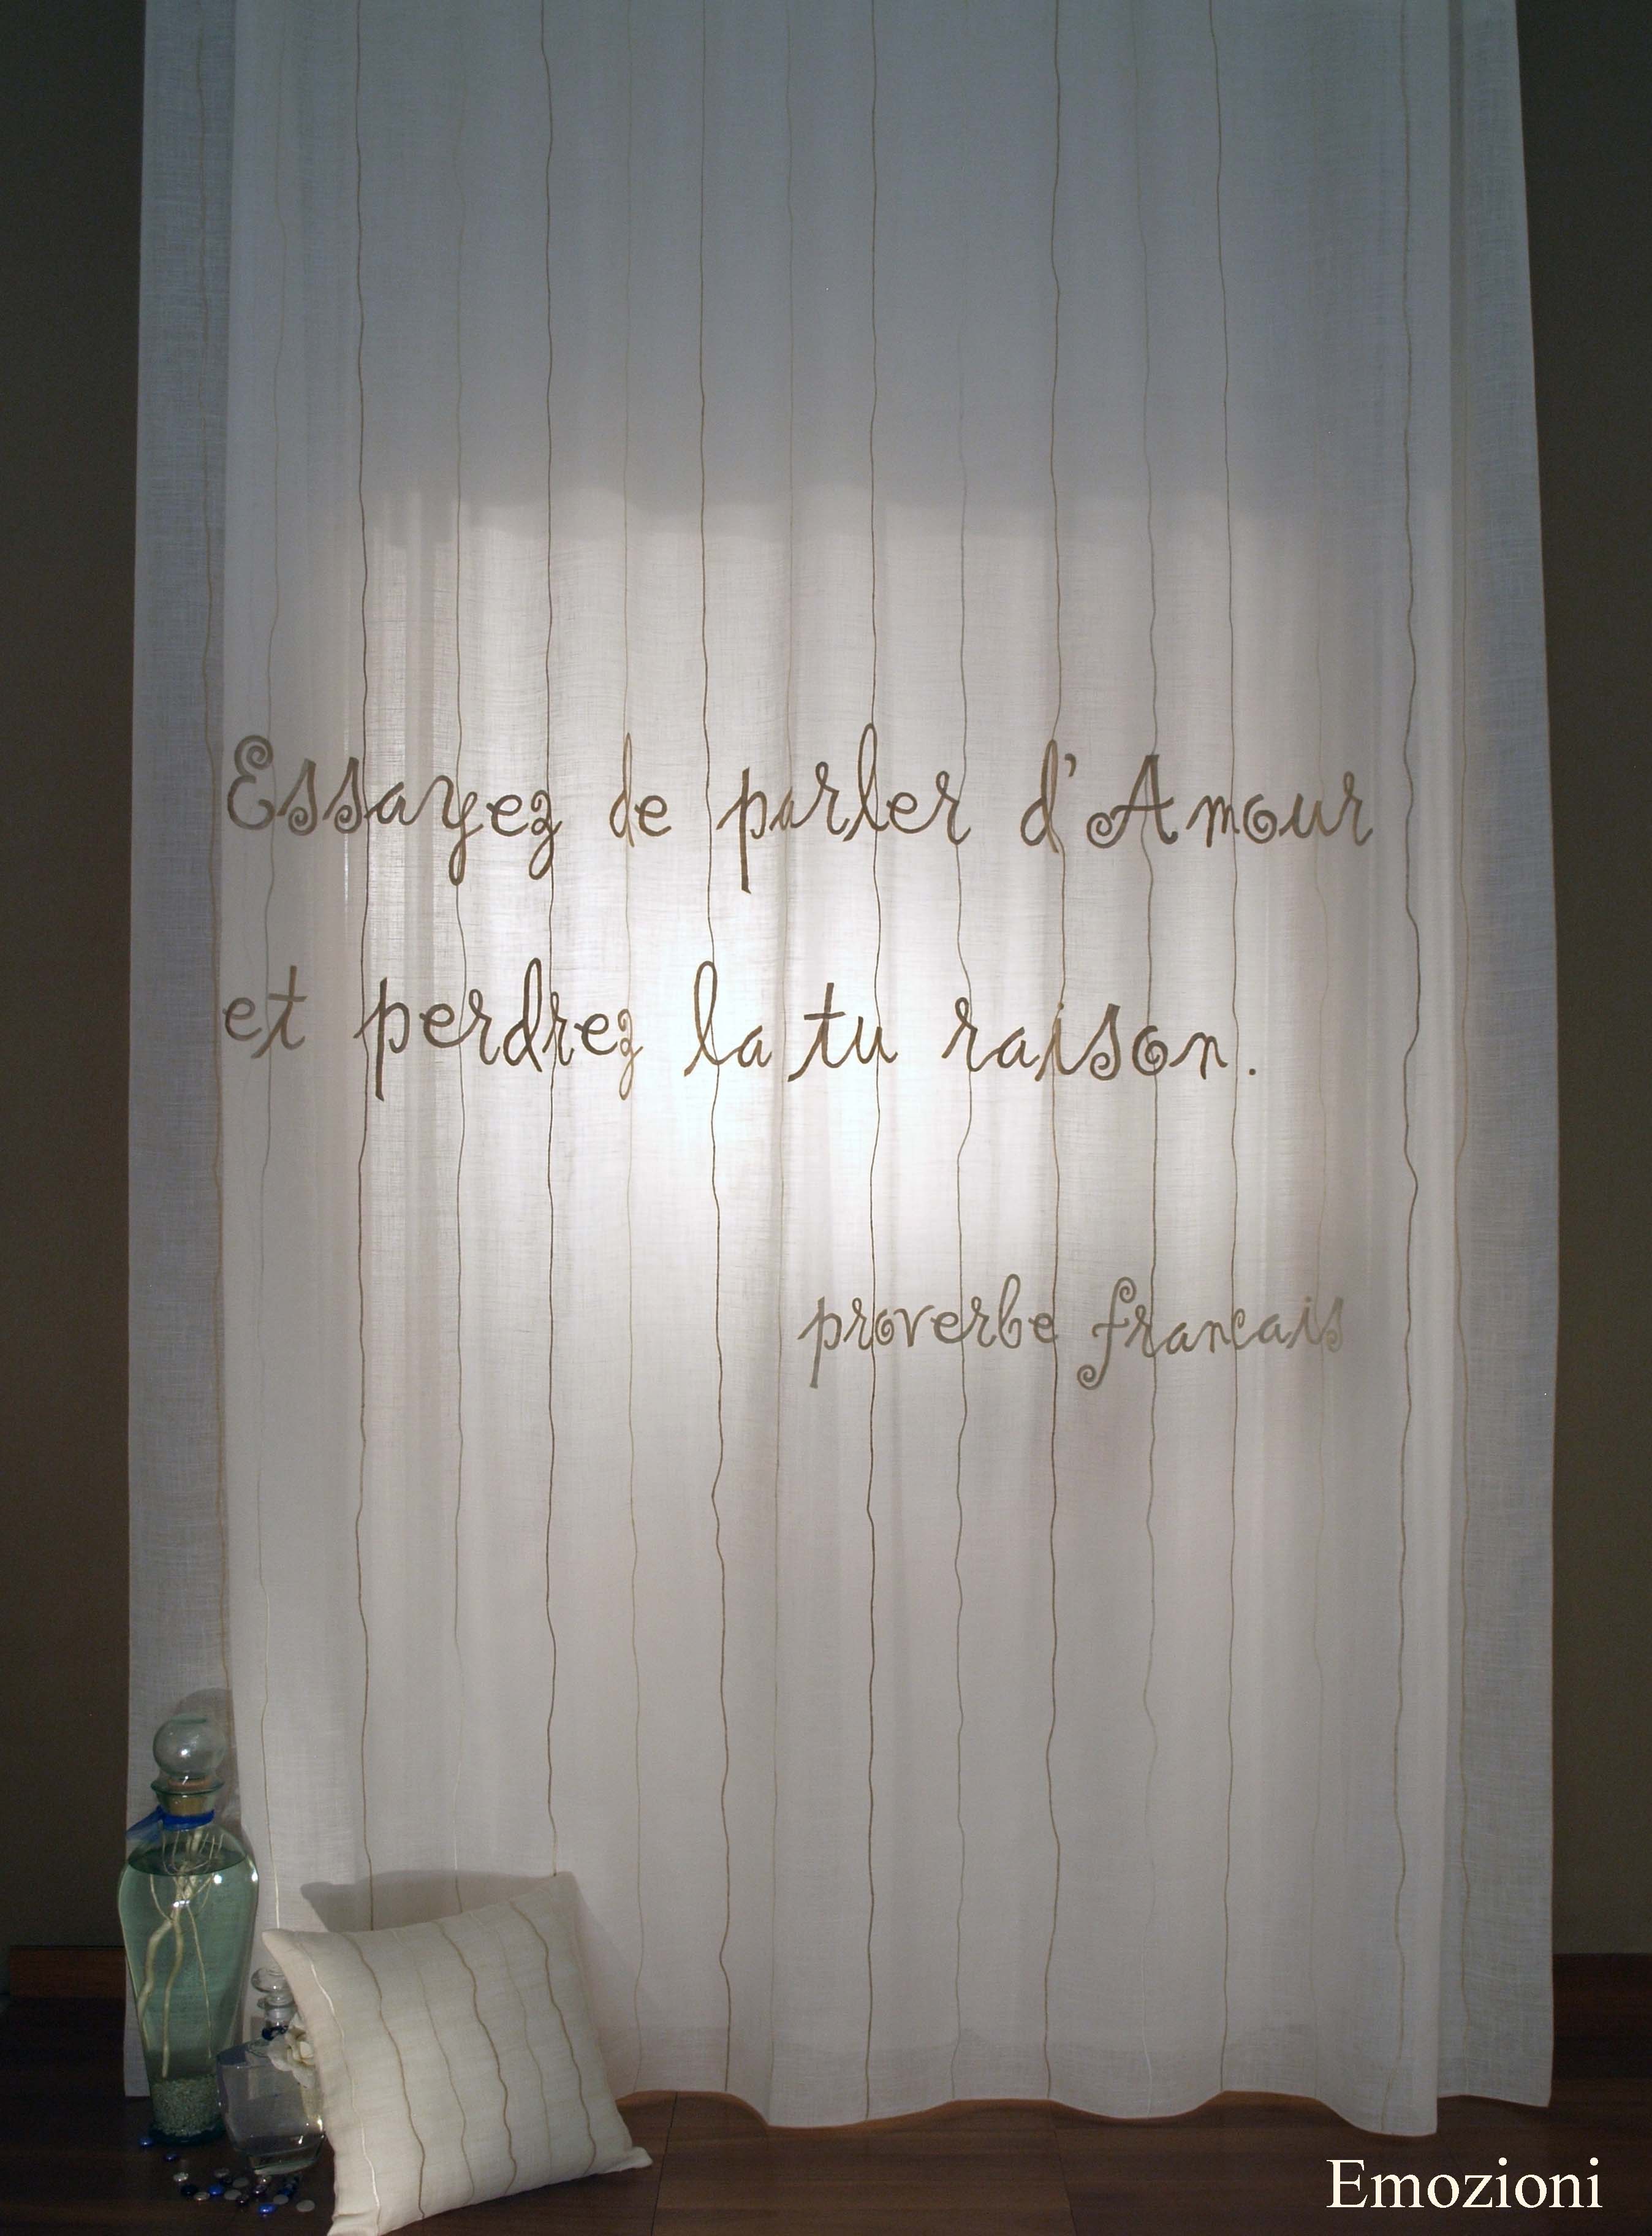 Essayez de parler d'Amour
et perdrez la tu raison.
proverbe francais
Emozioni